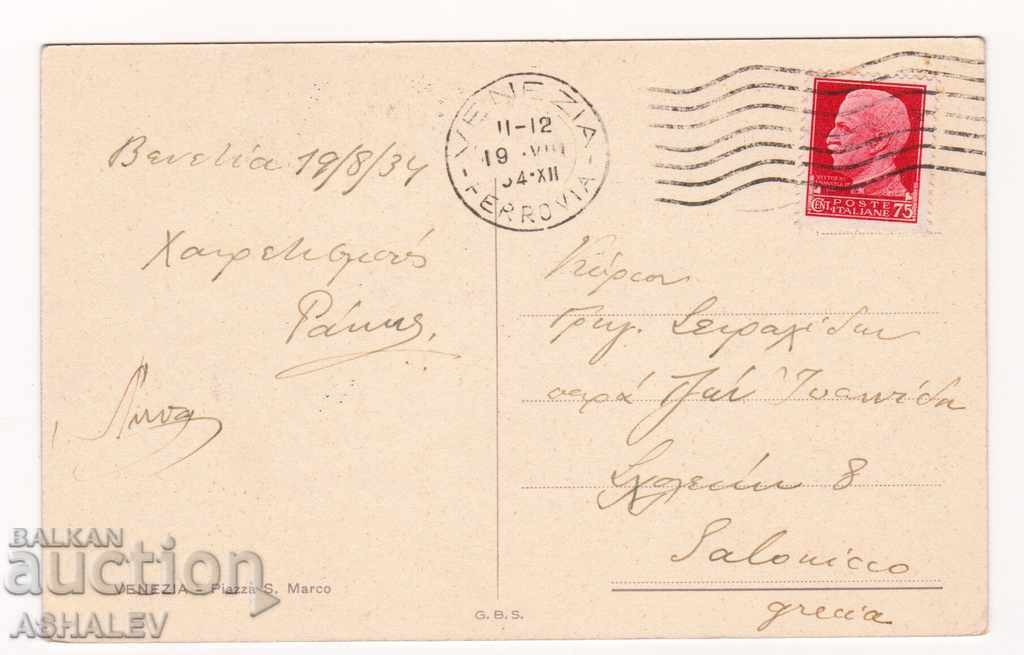 VENEZIA
11-12
19 · VIII
34 · XII
- FERROVIA -
VITTORIO
POSTE
CENT. ITALIANE 75
Βενετία 19/8/34
Χαιρετισμούς
Κύριον
Γρηγ.
παρά Τζάν Ἰωαννίδη
8
Salonicco
grecia
VENEZIA - Piazza S. Marco
G.B.S.
BALKAN
auction
ASHALEV